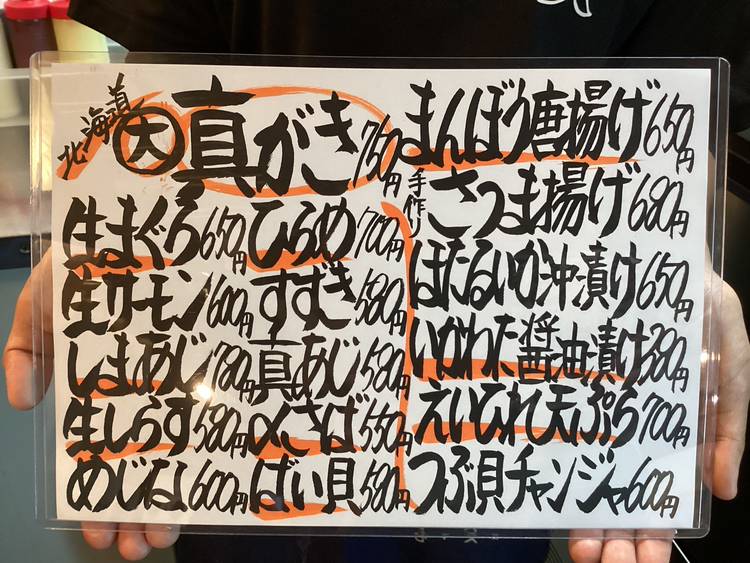 北海道 大 真がき 750円
生まぐろ 650円
生サーモン 600円
しまあじ 780円
生しらす 580円
めじな 600円
ひらめ 700円
すずき 580円
真あじ 580円
〆さば 550円
ばい貝 580円
まんぼう唐揚げ 650円
手作り さつま揚げ 680円
ほたるいか沖漬け 650円
いかわた醤油漬け 380円
えいひれ天ぷら 700円
つぶ貝チャンジャ 600円